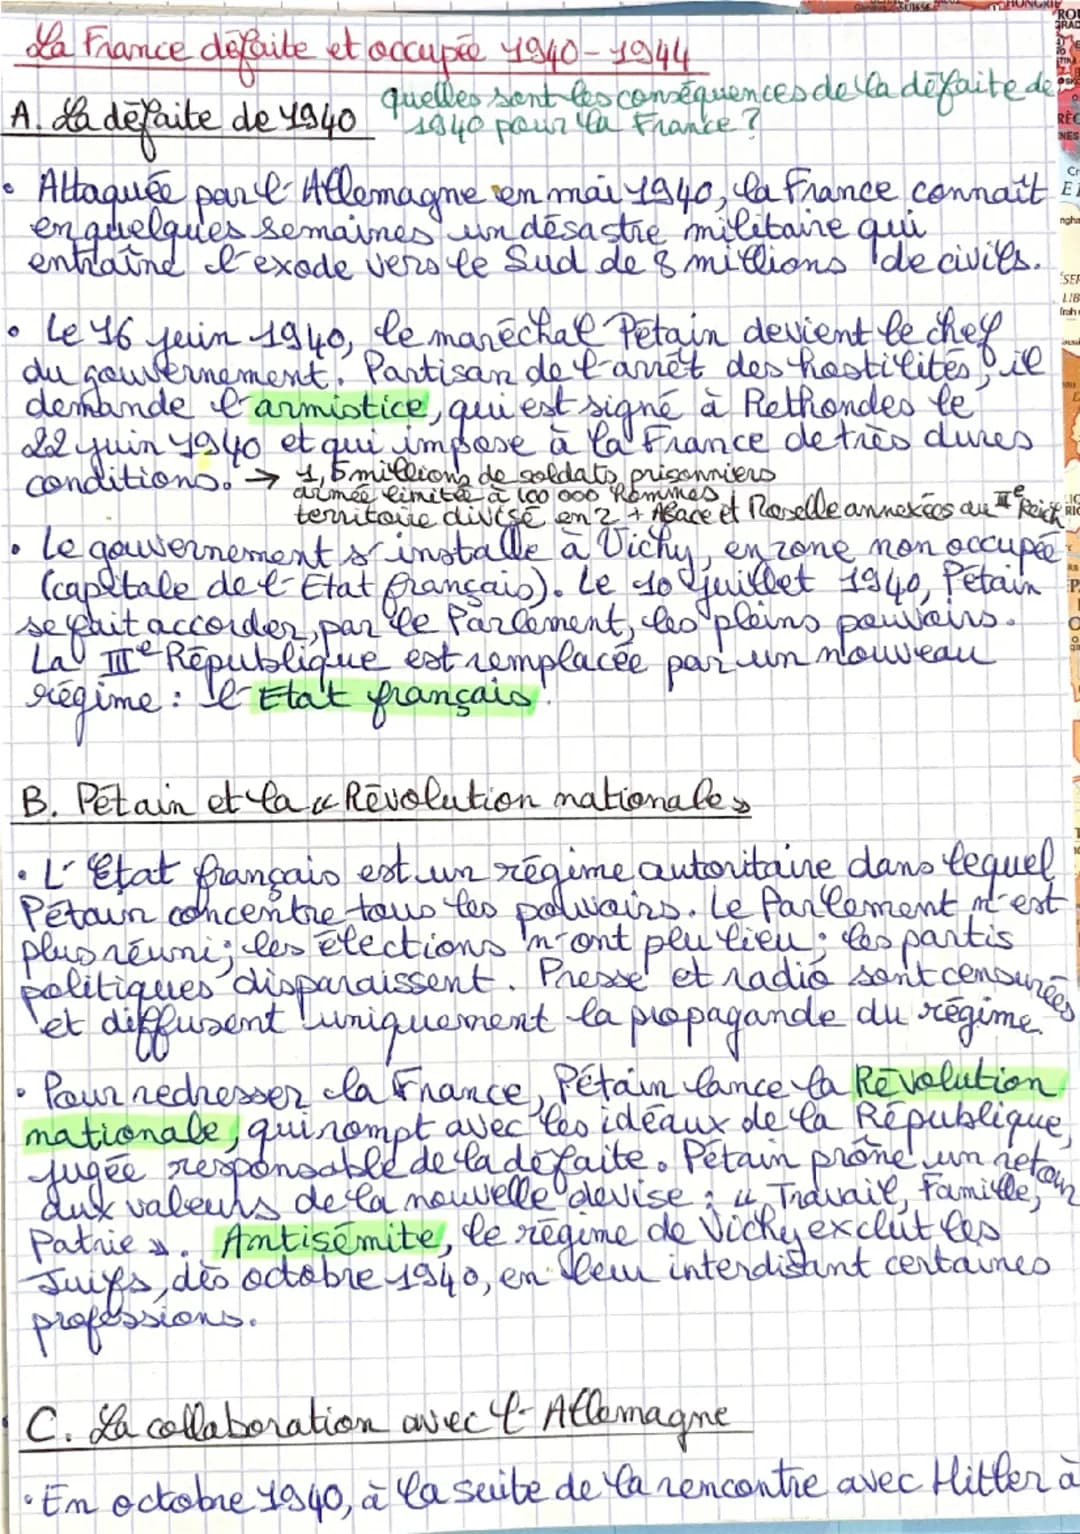 La France défaite et occupée 1940-1944
quelles sont les conséquences de la défaite de
1940 pour la France ?
A. La défaite de 1940
• Attaquée par l'Allemagne en mai 1940, la France connaît
en quelques semaines un désastre militaire qui
entraîne l'exode vers le Sud de 8 millions de civils.
• Le 16 juin 1940, le maréchal Pétain devient le chef
du gouvernement. Partisan de l'arrêt des hostilités, il
demande l'armistice, qui est signé à Rethondes le
22 juin 1940 et qui impose à la France de très dures
conditions. → 1,5 millions de soldats prisonniers
armée limitée à 100 000 hommes
territoire divisé en 2 + Alsace et Moselle annexées au IIIe Reich
• Le gouvernement s'installe à Vichy, en zone non occupée
(capitale de l'Etat français). Le 10 juillet 1940, Pétain
se fait accorder, par le Parlement, les pleins pouvoirs.
La IIIe République est remplacée par un nouveau
régime : l'Etat français.
B. Pétain et la « Révolution nationale »
• L'Etat français est un régime autoritaire dans lequel
Pétain concentre tous les pouvoirs. Le Parlement n'est
plus réuni ; les élections n'ont plu lieu ; les partis
politiques disparaissent. Presse et radio sont censurées
et diffusent uniquement la propagande du régime.
• Pour redresser la France, Pétain lance la Révolution
nationale, qui rompt avec les idéaux de la République,
jugée responsable de la défaite. Pétain prône un retour
aux valeurs de la nouvelle devise : « Travail, Famille,
Patrie ». Antisémite, le régime de Vichy exclut les
Juifs, dès octobre 1940, en leur interdisant certaines
professions.
C. La collaboration avec l'Allemagne
• En octobre 1940, à la suite de la rencontre avec Hitler à